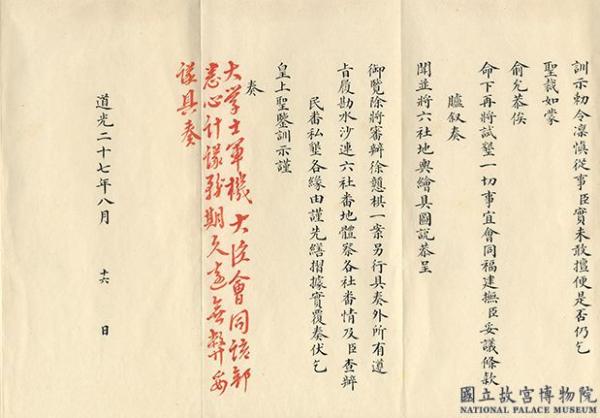 訓示勅令凜慎從事臣實未敢擅便是否仍乞
聖裁如蒙
俞允恭俟
命下再將試墾一切事宜會同福建撫臣妥議條款
臚叙奏
聞並將六社地輿繪具圖説恭呈
御覽除將審辦徐戇棋一案另行具奏外所有遵
旨履勘水沙連六社番地體察各社番情及臣查辦
民番私墾各緣由謹先繕摺據實覆奏伏乞
皇上聖鑒訓示謹
奏
大學士軍機大臣會同該部
悉心計議務期久遠無弊妥
議具奏
道光二十七年八月 十六 日
國立故宮博物院
NATIONAL PALACE MUSEUM